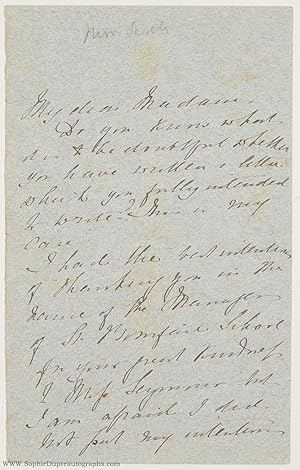 My dear Madam,
Do you know what
it is to be doubtful whether
you have written a letter
which you fully intended
to write? This is my
case
I had the best intention
of thanking you in the
name of the Managers
of St. Boniface School
for your great kindness
to Miss Seymour but
I am afraid I did
not put my intention
www.SophieDupreautographs.com